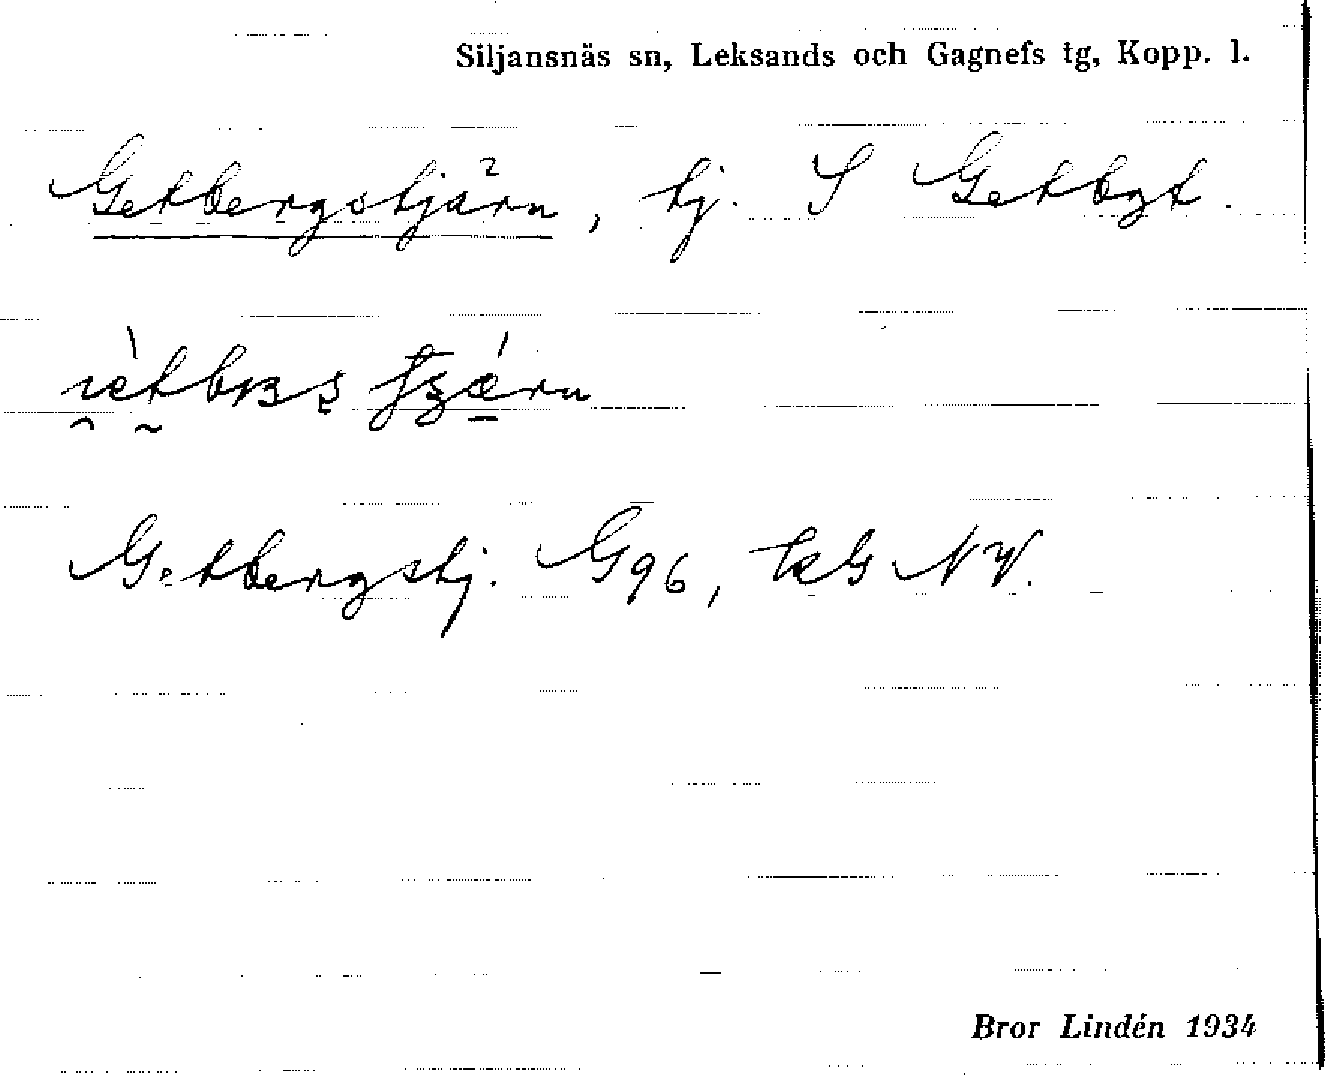 Siljansnäs sn, Leksands och Gagnefs tg, Kopp. l.
Getbergstjärn, tj. S Getbgt.
Getbergstj. G96, tkG NV.
Bror Lindén 1934